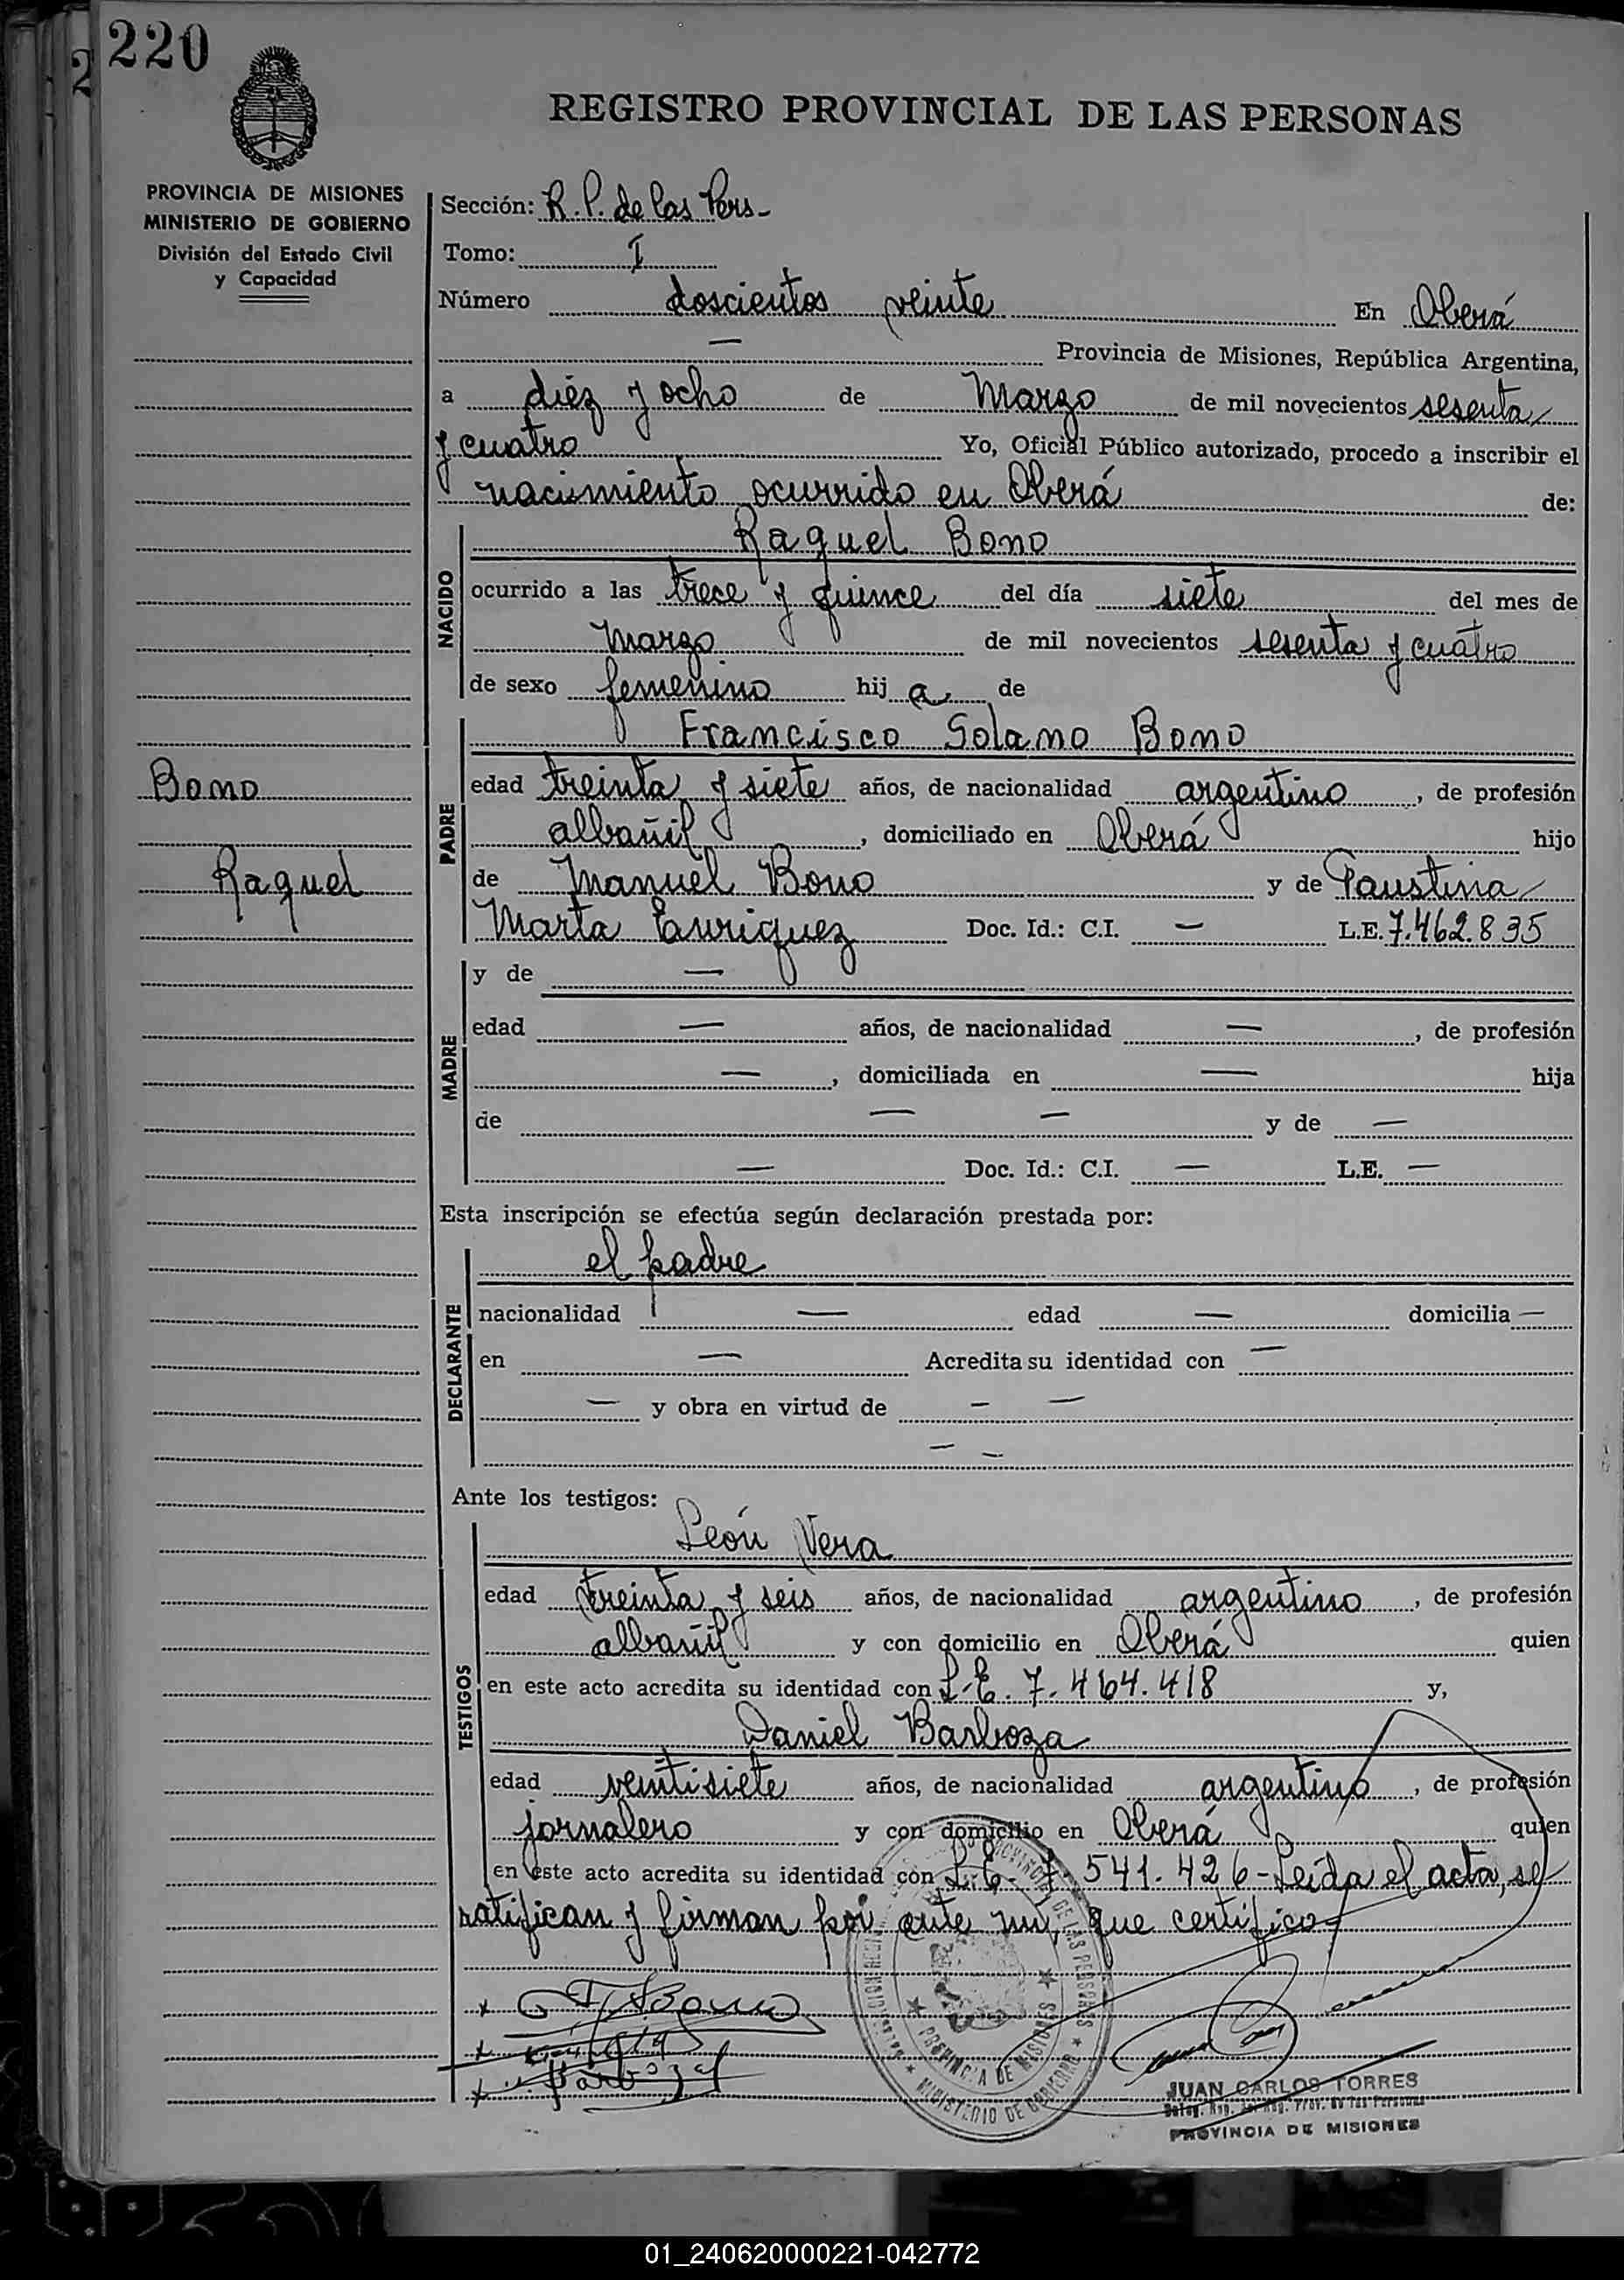 220
2
REGISTRO PROVINCIAL DE LAS PERSONAS
PROVINCIA DE MISIONES
MINISTERIO DE GOBIERNO
División del Estado Civil
y Capacidad
Sección: R.P. de las Pers-
Tomo: I
Número doscientos veinte En Oberá
— Provincia de Misiones, República Argentina,
a diez y ocho de Marzo de mil novecientos sesenta
y cuatro Yo, Oficial Público autorizado, procedo a inscribir el
nacimiento ocurrido en Oberá de:
NACIDO
Raquel Bono
ocurrido a las trece y quince del día siete del mes de
Marzo de mil novecientos sesenta y cuatro
de sexo femenino hij a de
PADRE
Francisco Solano Bono
Bono
edad treinta y siete años, de nacionalidad argentino, de profesión
albañil, domiciliado en Oberá hijo
Raquel
de Manuel Bono y de Faustina
Marta Enriquez Doc. Id.: C.I. — L.E. 7.462.835
MADRE
y de —
edad — años, de nacionalidad —, de profesión
—, domiciliada en — hija
de — — y de —
— Doc. Id.: C.I. — L.E. —
Esta inscripción se efectúa según declaración prestada por:
DECLARANTE
el padre
nacionalidad — edad — domicilia —
en — Acredita su identidad con —
— y obra en virtud de — —
— —
Ante los testigos:
TESTIGOS
León Vera
edad treinta y seis años, de nacionalidad argentino, de profesión
albañil y con domicilio en Oberá quien
en este acto acredita su identidad con L.E. 7.464.418 y,
Daniel Barboza
edad veintisiete años, de nacionalidad argentino, de profesión
jornalero y con domicilio en Oberá quien
en este acto acredita su identidad con L.E. 7 541.426- Leída el acta, se
ratifican y firman por ante mi, que certifico
x Bono
x
x Barboza
PROVINCIA DE MISIONES
MINISTERIO DE GOBIERNO
JUAN CARLOS TORRES
PROVINCIA DE MISIONES
01_240620000221-042772